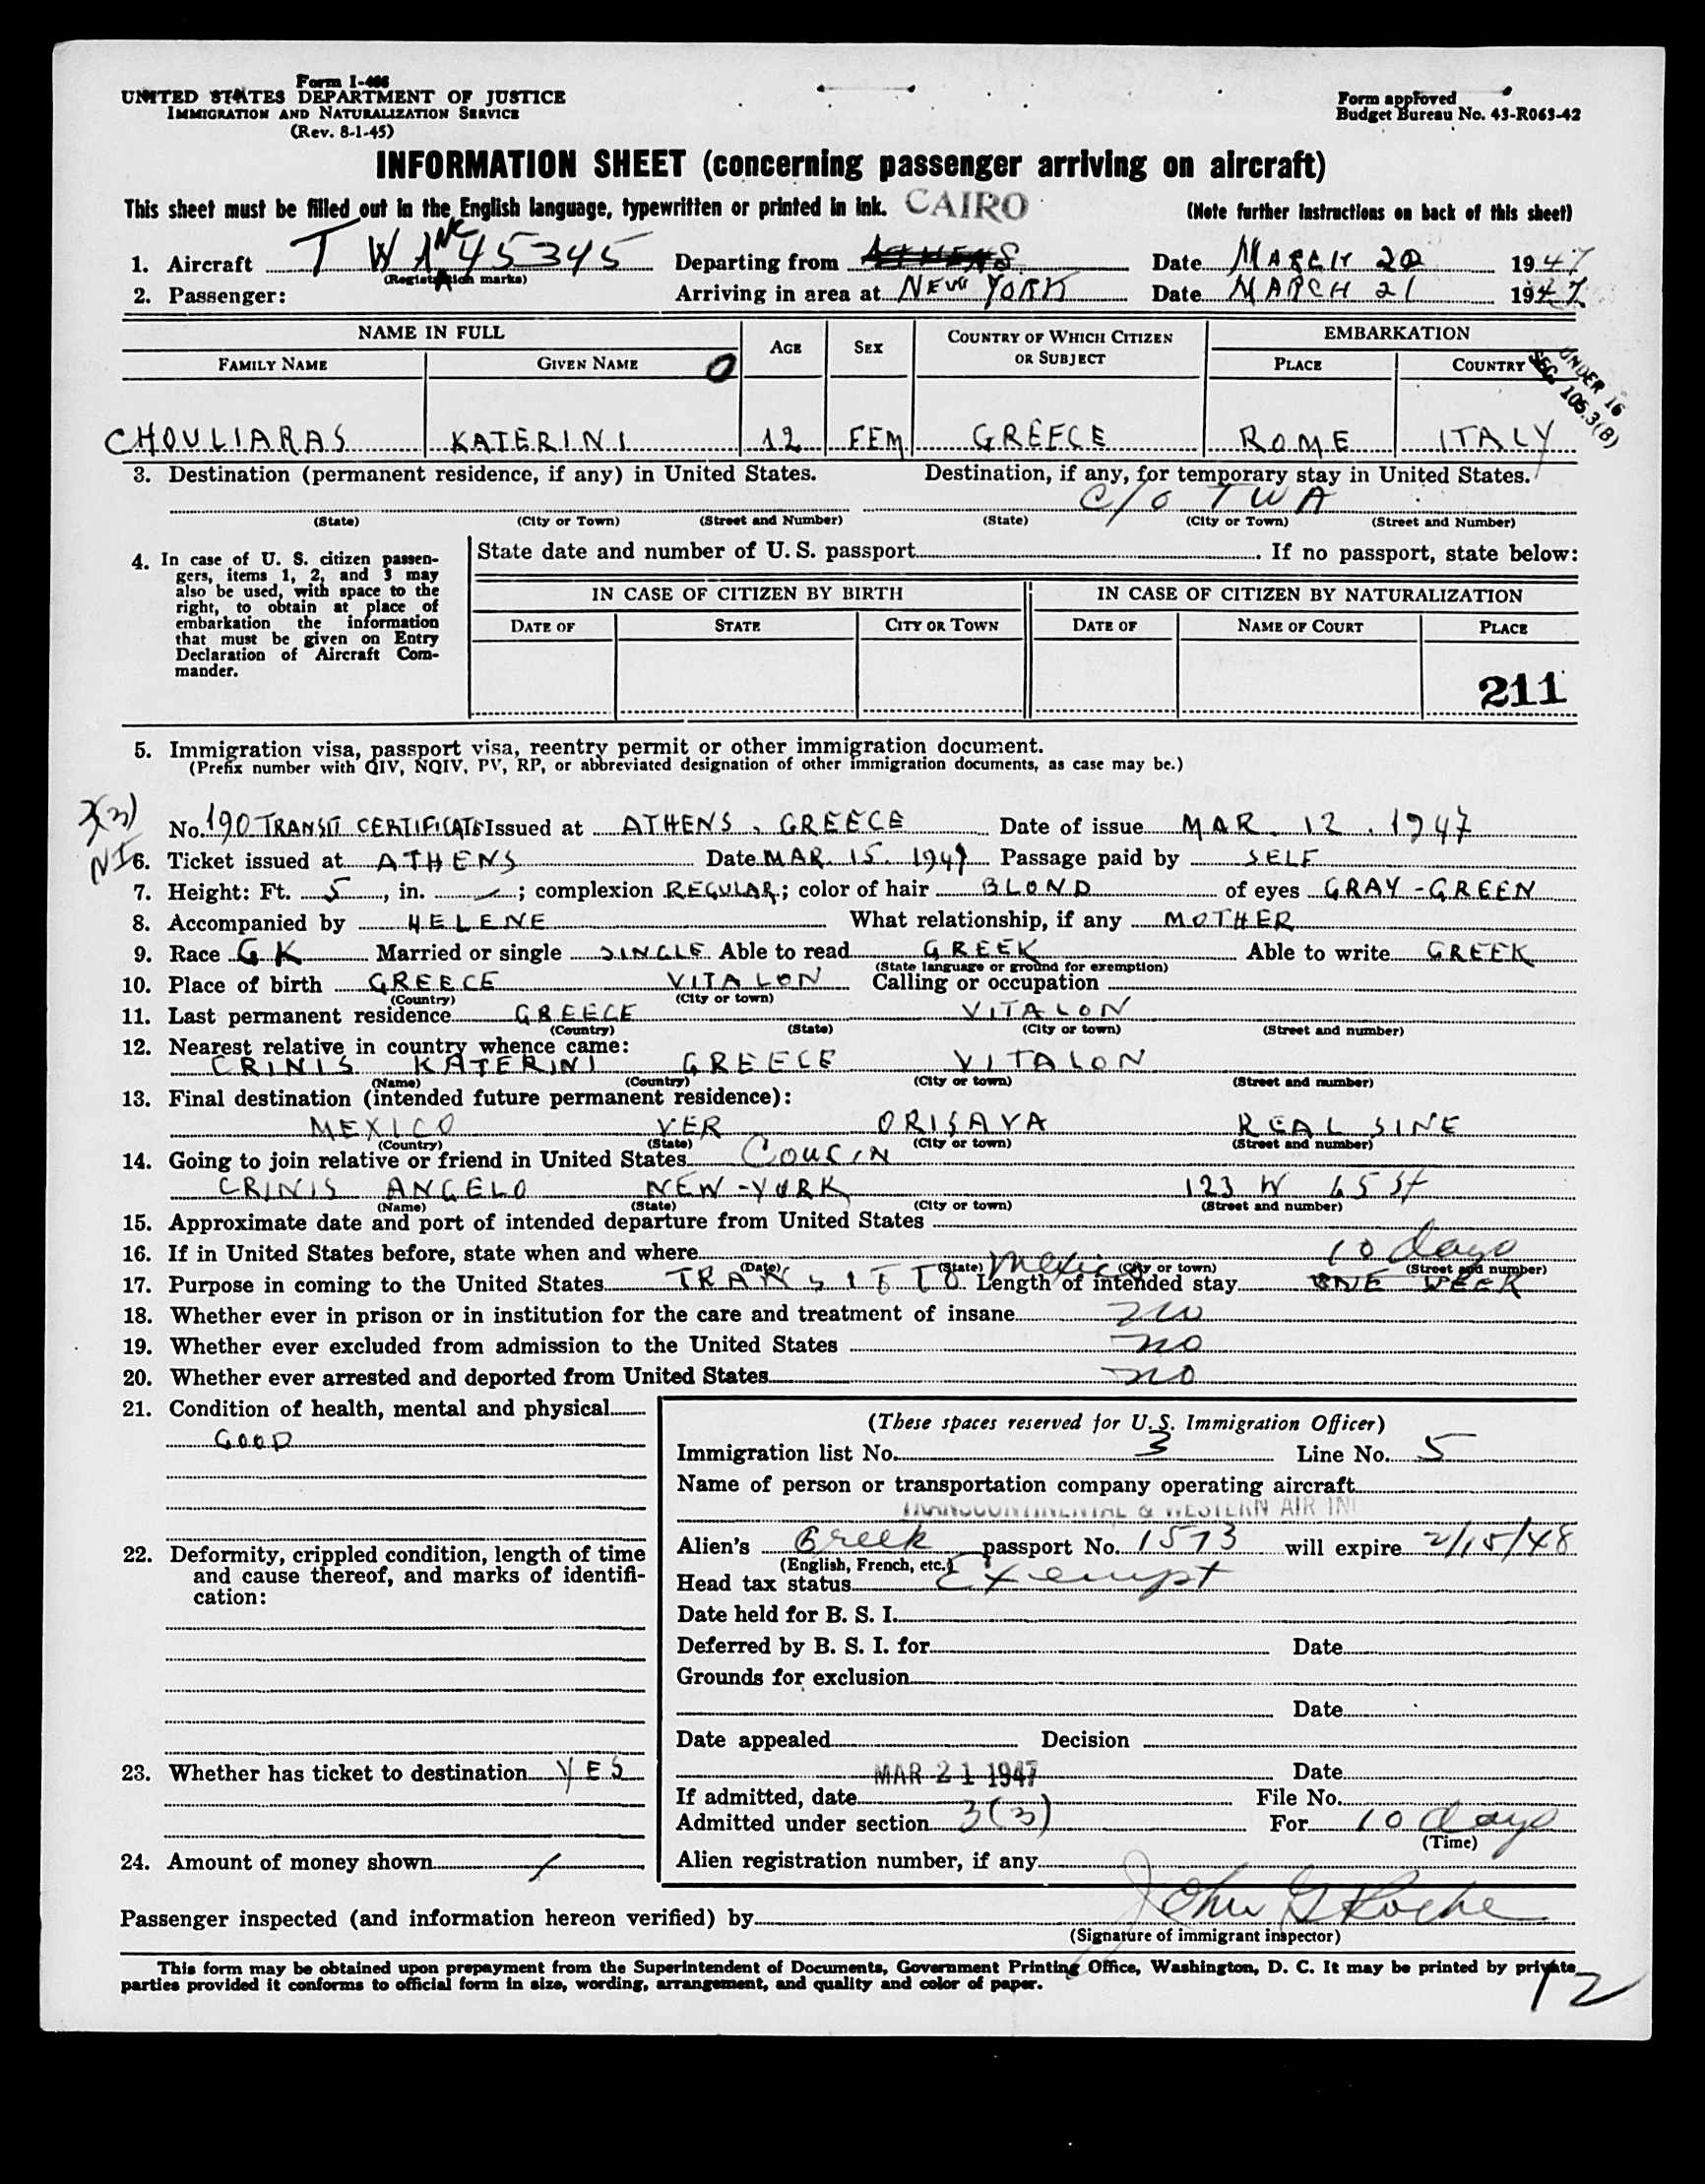 Form I-466
UNITED STATES DEPARTMENT OF JUSTICE
IMMIGRATION AND NATURALIZATION SERVICE
(Rev. 8-1-45)
Form approved
Budget Bureau No. 43-R063-42
INFORMATION SHEET (concerning passenger arriving on aircraft)
This sheet must be filled out in the English language, typewritten or printed in ink. CAIRO (Note further instructions on back of this sheet)
1. Aircraft T W A NC 45345 Departing from ATHENS Date MARCH 20 1947
(Registration marks)
2. Passenger: Arriving in area at NEW YORK Date MARCH 21 1947
NAME IN FULL AGE SEX COUNTRY OF WHICH CITIZEN OR SUBJECT EMBARKATION
FAMILY NAME GIVEN NAME 0 PLACE COUNTRY
UNDER 16
SEC. 105.3(B)
CHOULIARAS KATERINI 12 FEM GREECE ROME ITALY
3. Destination (permanent residence, if any) in United States. Destination, if any, for temporary stay in United States.
C/O TWA
(State) (City or Town) (Street and Number) (State) (City or Town) (Street and Number)
4. In case of U. S. citizen passen-
gers, items 1, 2, and 3 may
also be used, with space to the
right, to obtain at place of
embarkation the information
that must be given on Entry
Declaration of Aircraft Com-
mander.
State date and number of U. S. passport. If no passport, state below:
IN CASE OF CITIZEN BY BIRTH IN CASE OF CITIZEN BY NATURALIZATION
DATE OF STATE CITY OR TOWN DATE OF NAME OF COURT PLACE
211
5. Immigration visa, passport visa, reentry permit or other immigration document.
(Prefix number with QIV, NQIV, PV, RP, or abbreviated designation of other immigration documents, as case may be.)
3(3)
NI
No. 190 TRANSIT CERTIFICATE Issued at ATHENS, GREECE Date of issue MAR. 12. 1947
6. Ticket issued at ATHENS Date MAR. 15. 1947 Passage paid by SELF
7. Height: Ft. 5, in. –; complexion REGULAR; color of hair BLOND of eyes GRAY-GREEN
8. Accompanied by HELENE What relationship, if any MOTHER
9. Race GK Married or single SINGLE Able to read GREEK Able to write GREEK
(State language or ground for exemption)
10. Place of birth GREECE VITALON Calling or occupation
(Country) (City or town)
11. Last permanent residence GREECE VITALON
(Country) (State) (City or town) (Street and number)
12. Nearest relative in country whence came:
CRINIS KATERINI GREECE VITALON
(Name) (Country) (City or town) (Street and number)
13. Final destination (intended future permanent residence):
MEXICO VER ORISAVA REAL SINE
(Country) (State) (City or town) (Street and number)
14. Going to join relative or friend in United States COUCIN
CRINIS ANGELO NEW-YORK 123 W 65 St
(Name) (State) (City or town) (Street and number)
15. Approximate date and port of intended departure from United States
16. If in United States before, state when and where 10 days
(Date) (State) (City or town) (Street and number)
17. Purpose in coming to the United States TRANSIT TO Mexico Length of intended stay ONE WEEK
18. Whether ever in prison or in institution for the care and treatment of insane no
19. Whether ever excluded from admission to the United States no
20. Whether ever arrested and deported from United States no
21. Condition of health, mental and physical
GOOD
22. Deformity, crippled condition, length of time
and cause thereof, and marks of identifi-
cation:
23. Whether has ticket to destination YES
24. Amount of money shown /
(These spaces reserved for U.S. Immigration Officer)
Immigration list No. 3 Line No. 5
Name of person or transportation company operating aircraft
TRANSCONTINENTAL & WESTERN AIR INC
Alien's Greek passport No. 1573 will expire 2/15/48
(English, French, etc.)
Head tax status Exempt
Date held for B. S. I.
Deferred by B. S. I. for Date
Grounds for exclusion
Date
Date appealed Decision
MAR 21 1947 Date
If admitted, date File No.
Admitted under section 3(3) For 10 days
(Time)
Alien registration number, if any
Passenger inspected (and information hereon verified) by John G Roche
(Signature of immigrant inspector)
This form may be obtained upon prepayment from the Superintendent of Documents, Government Printing Office, Washington, D. C. It may be printed by private
parties provided it conforms to official form in size, wording, arrangement, and quality and color of paper.
12